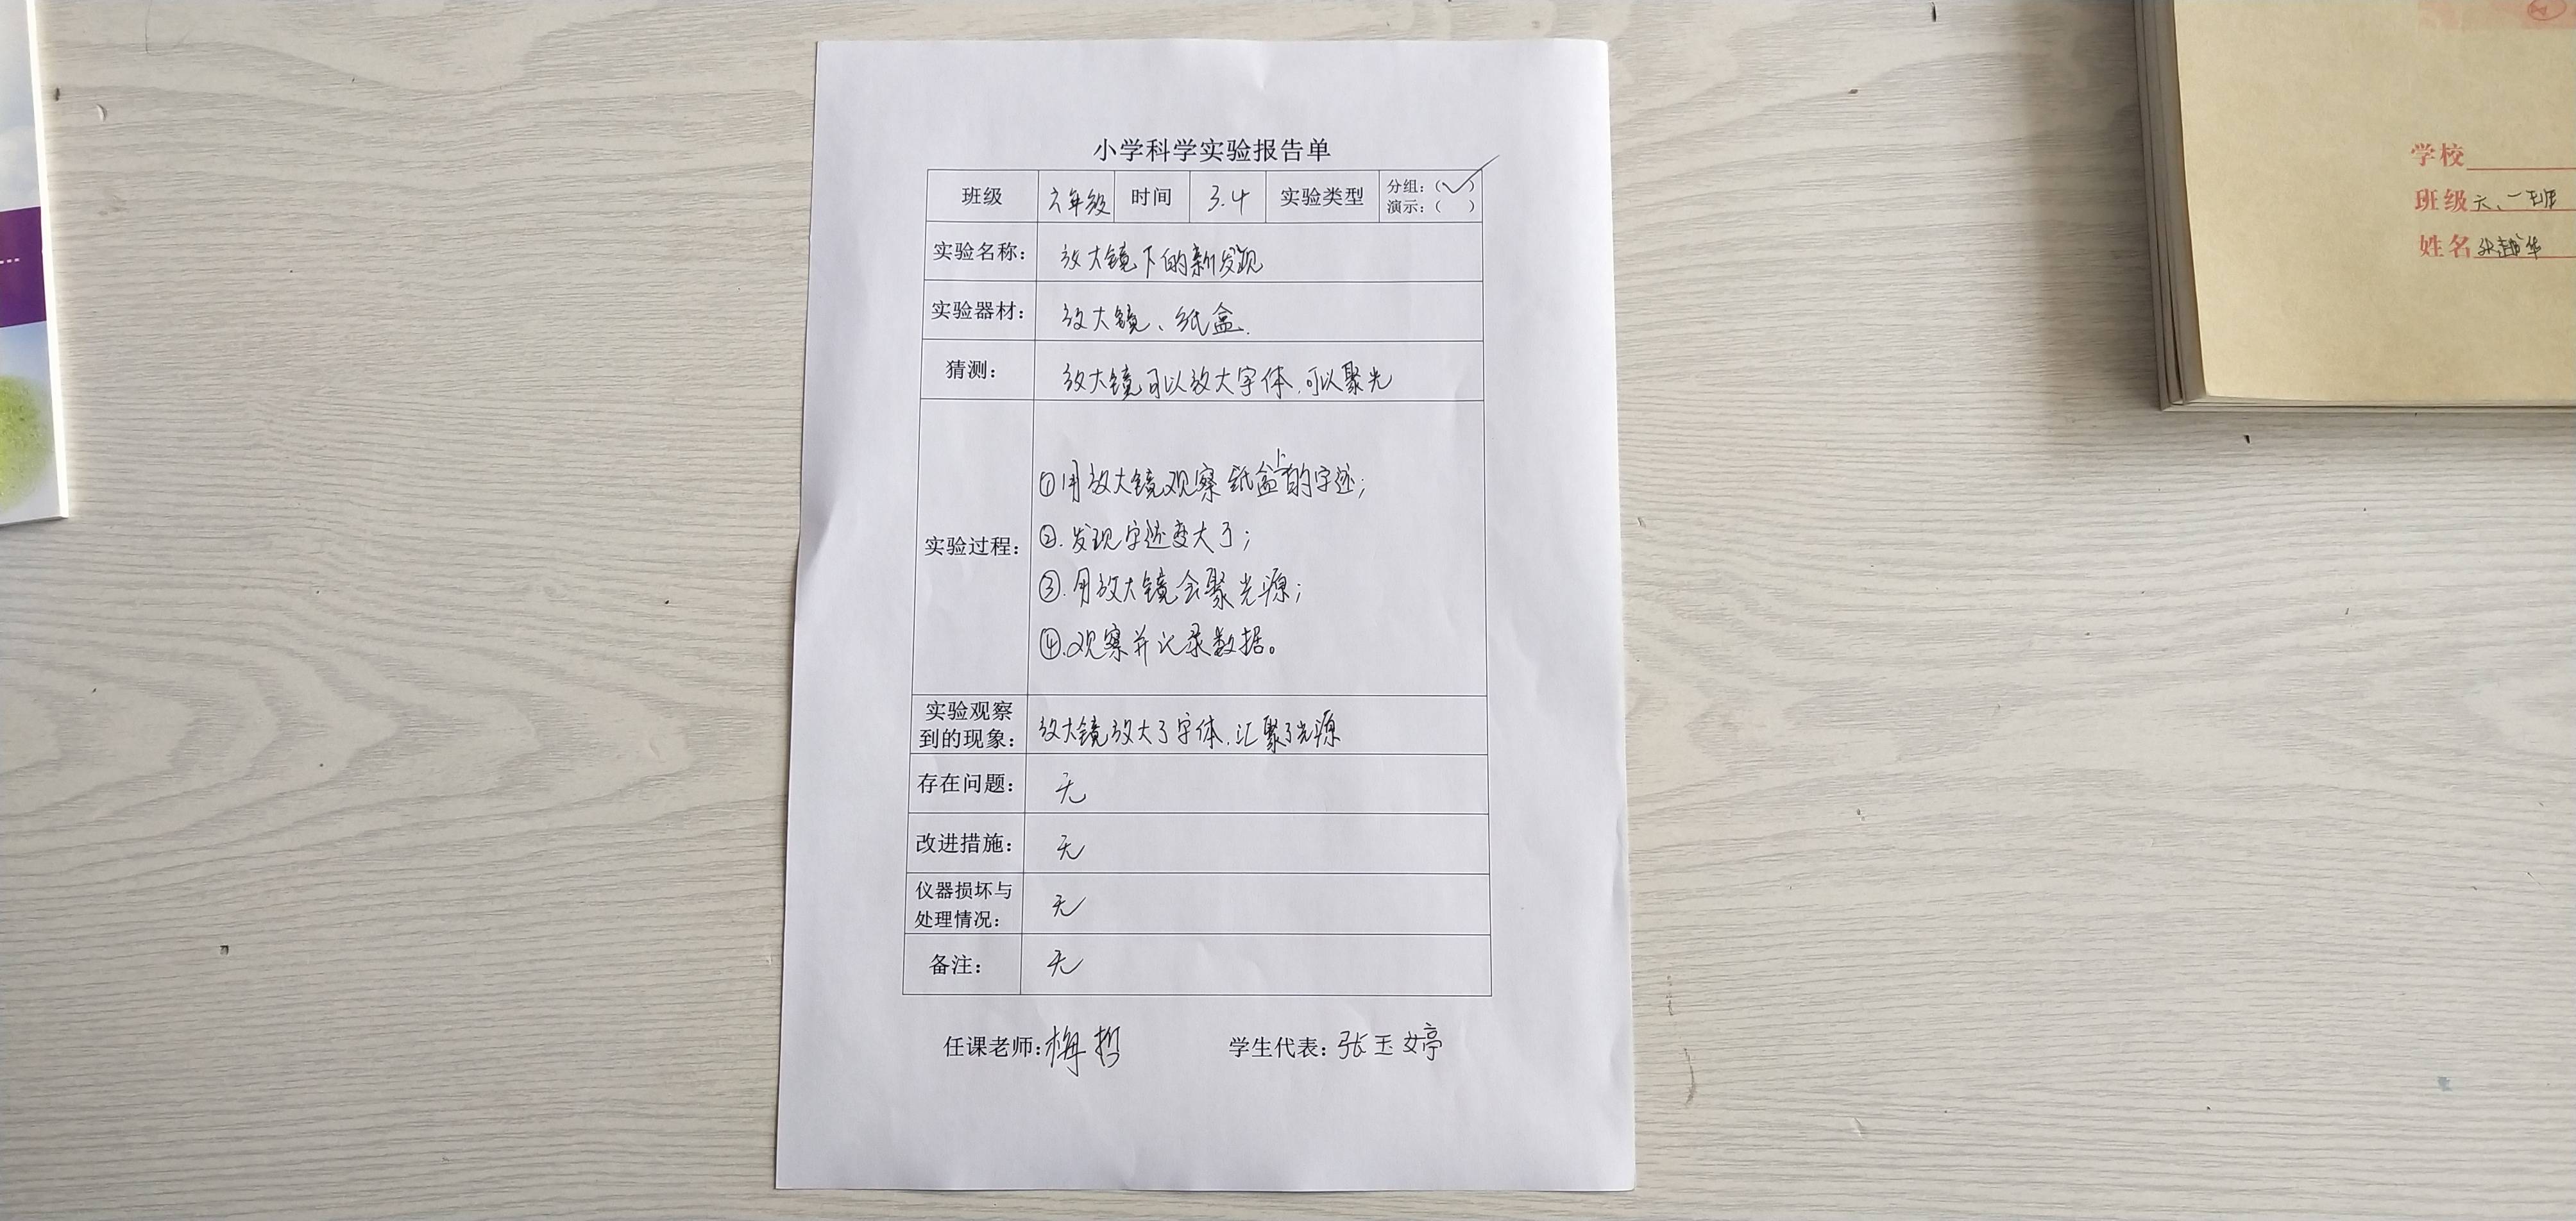 小学科学实验报告单
班级 六年级 时间 3.4 实验类型 分组：（√）
演示：（ ）
实验名称： 放大镜下的新发现
实验器材： 放大镜、纸盒.
猜测： 放大镜可以放大字体，可以聚光
实验过程：
①用放大镜观察纸盒上的字迹；
②.发现字迹变大了；
③.用放大镜会聚光源；
④.观察并记录数据。
实验观察
到的现象： 放大镜放大了字体，汇聚了光源
存在问题： 无
改进措施： 无
仪器损坏与
处理情况： 无
备注： 无
任课老师：梅哲 学生代表：张玉婷
学校
班级 六、一班
姓名 张越华